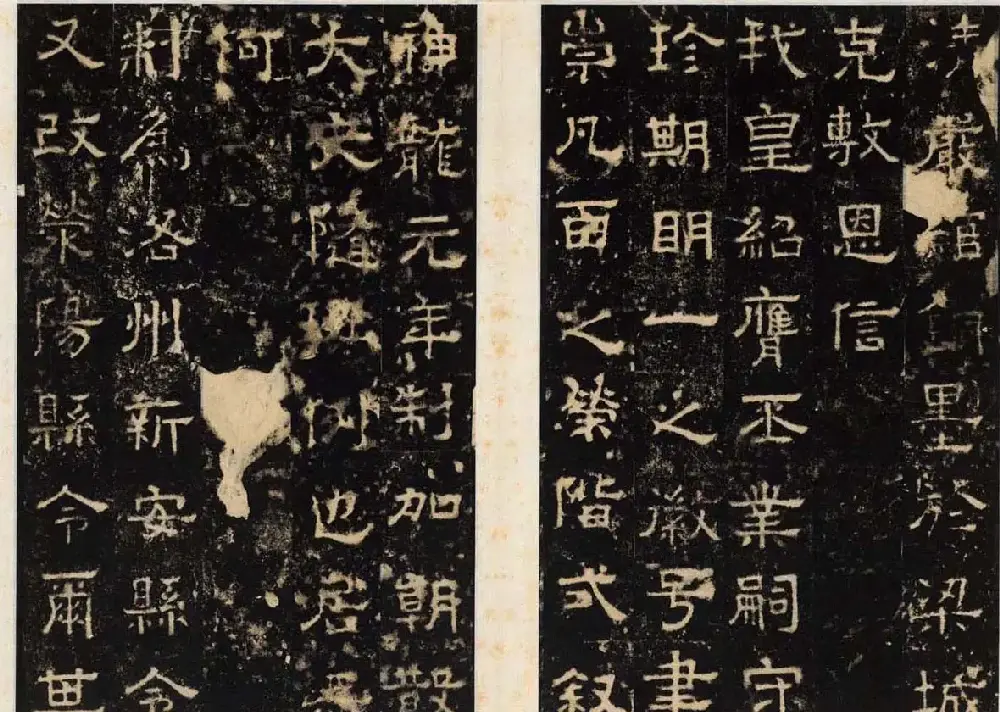 嚴綰銅墨於梁城
克敷恩信
我皇紹膺丕業嗣守
珍期明一之徽号聿
崇凡百之榮階式叙
神龍元年制加朝散
大夫隨班例也居無
河
為洛州新安縣令
又改滎陽縣令爾